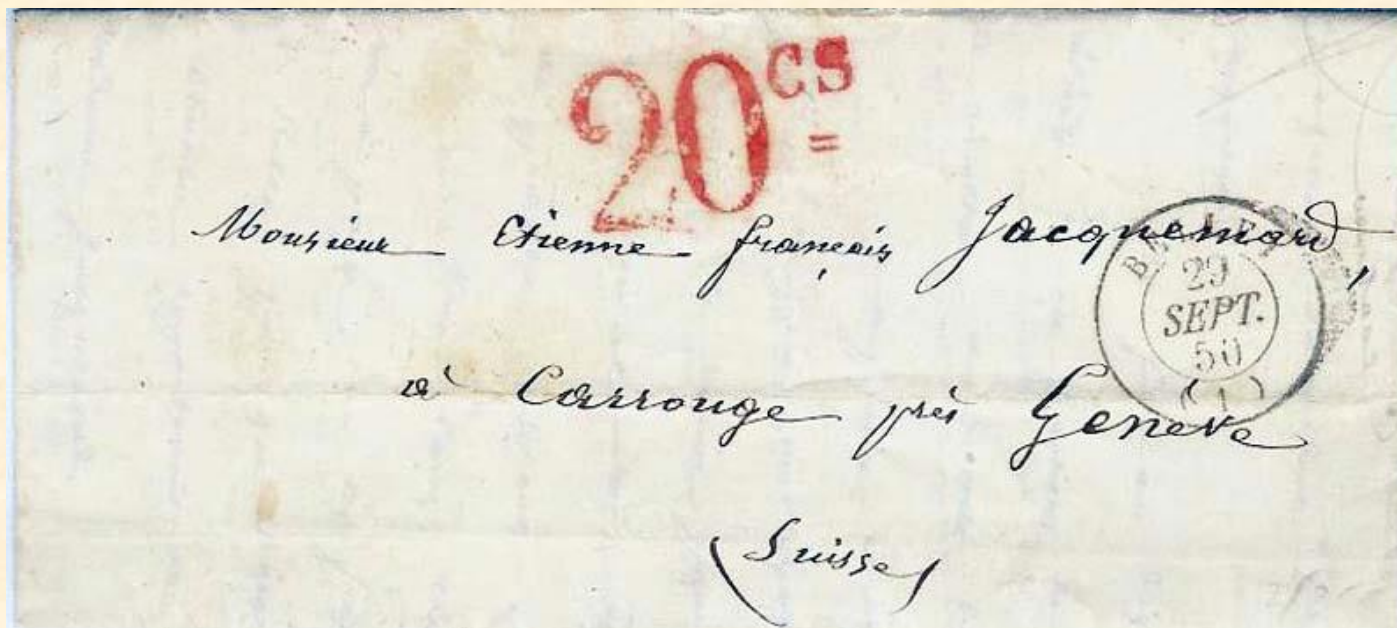 20 cs
=
Monsieur Etienne françois Jacquemard,
29
SEPT.
50
(1)
à Carrouge près Genève
(Suisse)